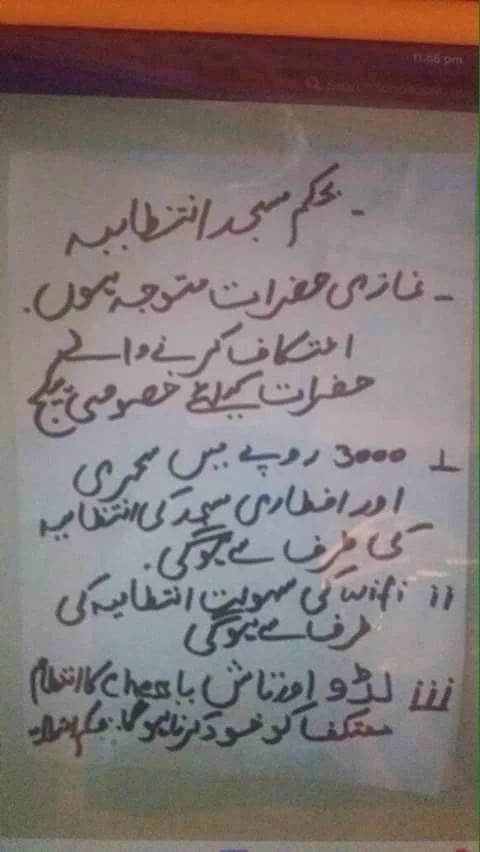 11:56 pm
- بحکم مسجد انتظامیہ
- نمازی حضرات متوجہ ہوں.
اعتکاف کرنے والے
حضرات کیلئے خصوصی پیکج
i 3000 روپے میں سحری
اور افطاری مسجد کی انتظامیہ
کی طرف سے ہوگی.
ii wifi کی سہولت انتظامیہ کی
طرف سے ہوگی
iii لڈو اور تاش یا chess کا انتظام
معتکف کو خود کرنا ہوگا. بحکم